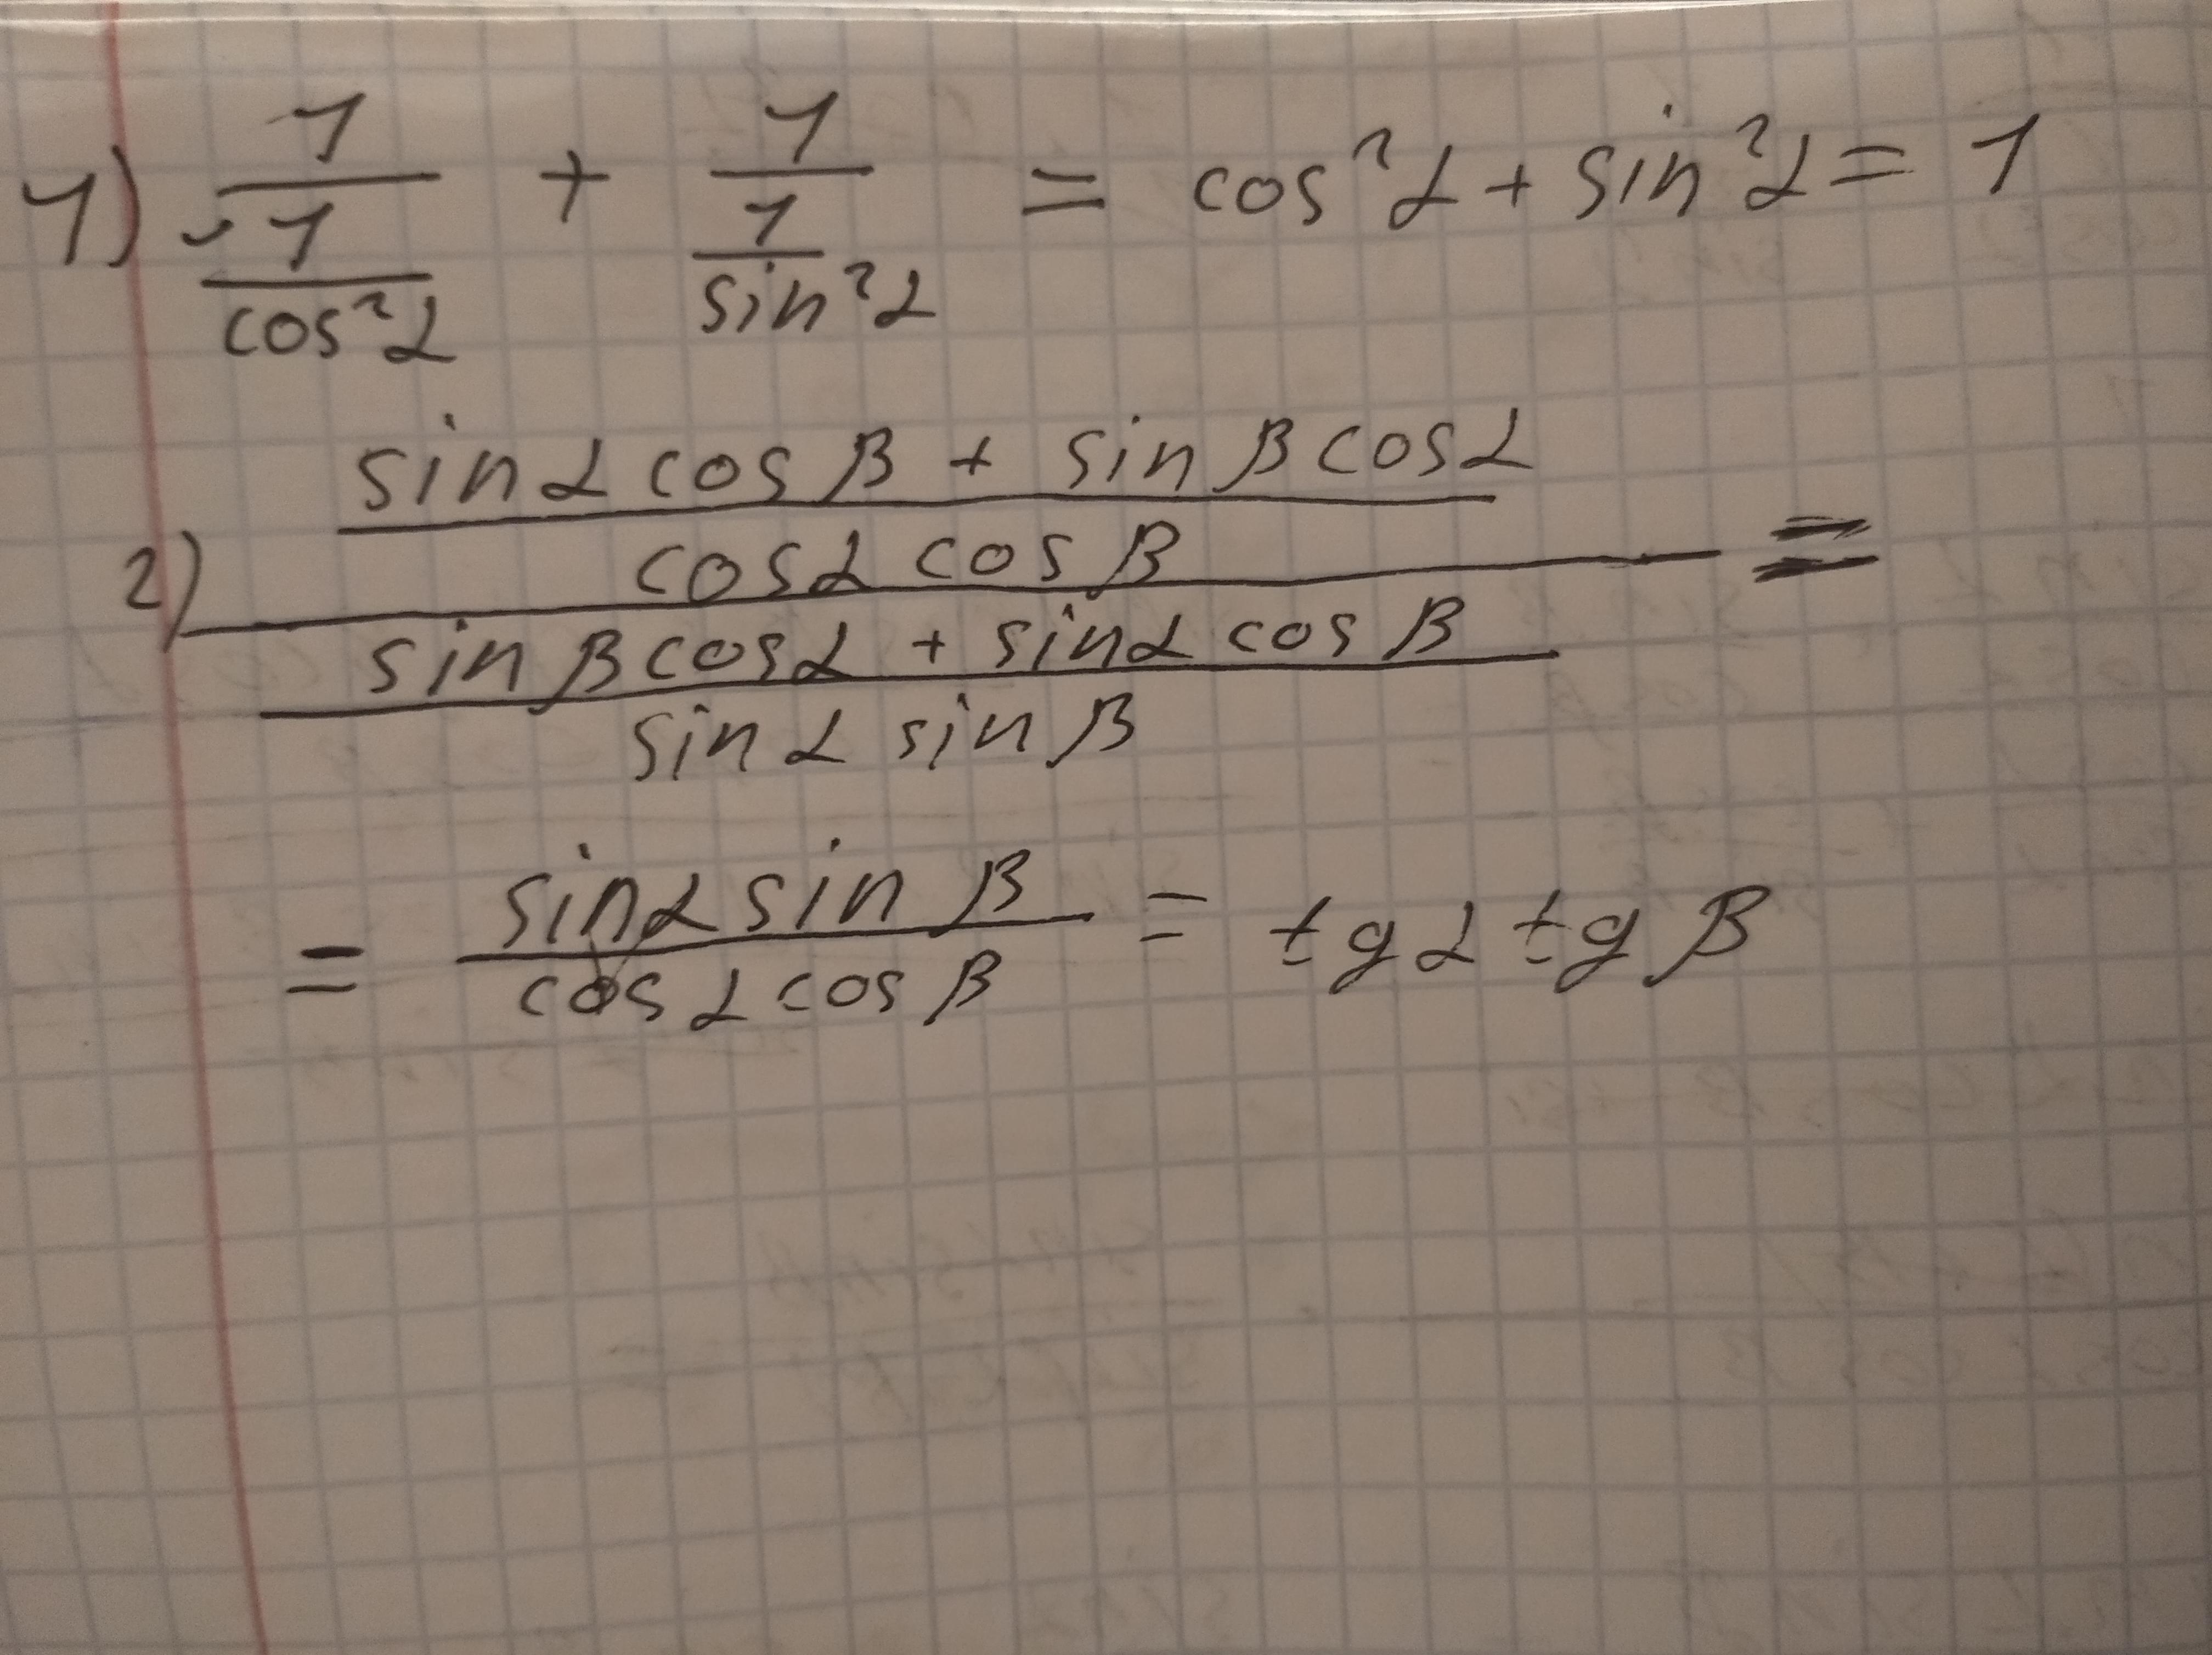 1) 1/(1/cos²α) + 1/(1/sin²α) = cos²α + sin²α = 1
2) ((sinα cosβ + sinβ cosα)/(cosα cosβ))/((sinβ cosα + sinα cosβ)/(sinα sinβ)) =
= (sinα sinβ)/(cosα cosβ) = tgα tgβ